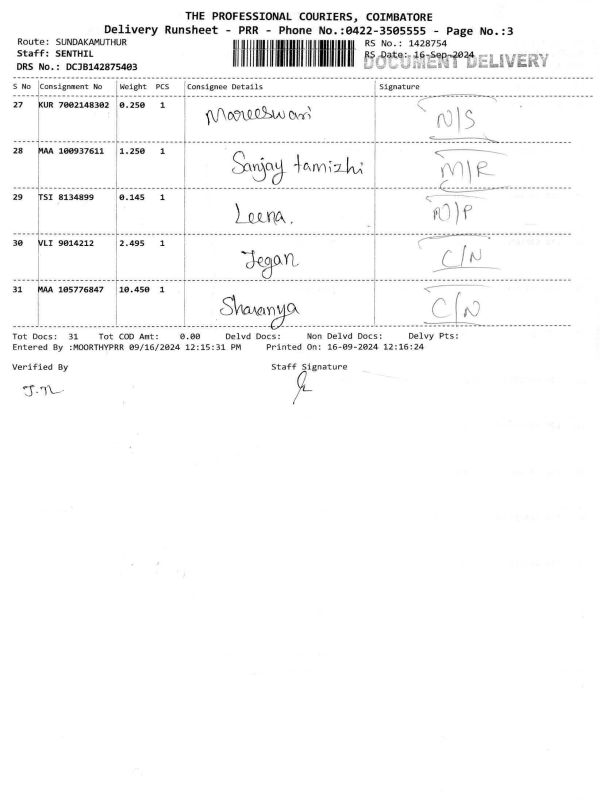 THE PROFESSIONAL COURIERS, COIMBATORE
Delivery Runsheet - PRR - Phone No.:0422-3505555 - Page No.:3
Route: SUNDAKAMUTHUR RS No.: 1428754
Staff: SENTHIL RS Date: 16-Sep-2024
DOCUMENT DELIVERY
DRS No.: DCJB142875403
S No Consignment No Weight PCS Consignee Details Signature
27 KUR 7002148302 0.250 1 Mareeswari N/S
28 MAA 100937611 1.250 1 Sanjay tamizhi M/R
29 TSI 8134899 0.145 1 Leena.
30 VLI 9014212 2.495 1 Jegan C/N
31 MAA 105776847 10.450 1 Sharanya C/N
Tot Docs: 31 Tot COD Amt: 0.00 Delvd Docs: Non Delvd Docs: Delvy Pts:
Entered By :MOORTHYPRR 09/16/2024 12:15:31 PM Printed On: 16-09-2024 12:16:24
Verified By Staff Signature
J.M